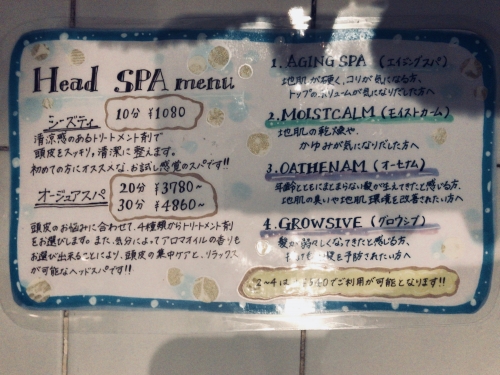 Head SPA menu
シーズティ
10分 ¥1080
清涼感のあるトリートメント剤で
頭皮をスッキリ。清潔に整えます。
初めての方にオススメな、お試し感覚のスパです!!
オージュアスパ
20分 ¥3780~
30分 ¥4860~
頭皮のお悩みに合わせて、4種類からトリートメント剤
をお選びします。また、気分によってアロマオイルの香りも
お選び出来ることにより、頭皮の集中ケアと、リラックス
が可能なヘッドスパです!!
1. AGING SPA (エイジングスパ)
地肌が硬く、コリが気になる方、
トップのボリュームが気になりだした方へ
2. MOISTCALM (モイストカーム)
地肌の乾燥や、
かゆみが気になりだした方へ
3. OATHENAM (オーセナム)
年齢とともにまとまらない髪が生えてきたと感じる方、
地肌の臭いや地肌環境を改善されたい方へ
4. GROWSIVE (グロウシブ)
髪が弱々しくなってきたと感じる方、
を予防されたい方へ
2~4は でご利用が可能となります!!